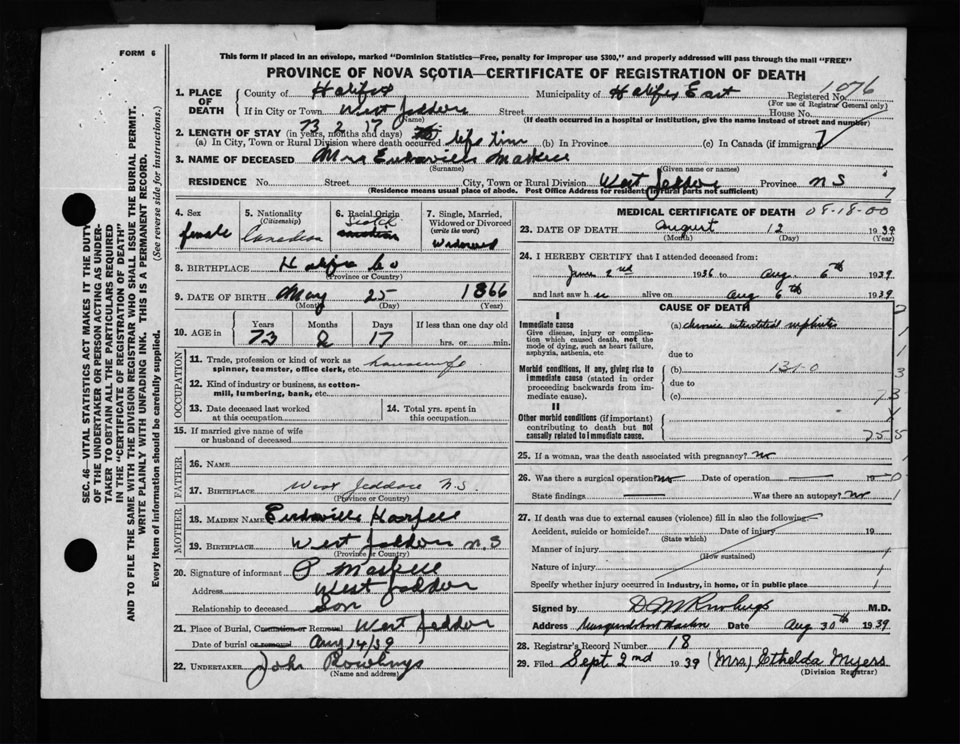 FORM 6
This form if placed in an envelope, marked "Dominion Statistics—Free, penalty for improper use $300," and properly addressed will pass through the mail "FREE"
PROVINCE OF NOVA SCOTIA—CERTIFICATE OF REGISTRATION OF DEATH
SEC. 46—VITAL STATISTICS ACT MAKES IT THE DUTY
OF THE UNDERTAKER OR PERSON ACTING AS UNDER-
TAKER TO OBTAIN ALL THE PARTICULARS REQUIRED
IN THE "CERTIFICATE OF REGISTRATION OF DEATH"
AND TO FILE THE SAME WITH THE DIVISION REGISTRAR WHO SHALL ISSUE THE BURIAL PERMIT.
WRITE PLAINLY WITH UNFADING INK. THIS IS A PERMANENT RECORD.
Every item of information should be carefully supplied. (See reverse side for instructions.)
1. PLACE OF DEATH
County of Halifax Municipality of Halifax East Registered No. 1076
(For use of Registrar General only)
If in City or Town West Jeddore Street House No.
(Name) (If death occurred in a hospital or institution, give the name instead of street and number)
2. LENGTH OF STAY (in years, months and days) 73 2 17
(a) In City, Town or Rural Division where death occurred life time (b) In Province (c) In Canada (if immigrant)
3. NAME OF DECEASED Mrs
(Surname) (Given name or names)
RESIDENCE No. Street City, Town or Rural Division West Jeddore Province N S
(Residence means usual place of abode. Post Office Address for residents in rural parts not sufficient)
4. Sex
female
5. Nationality
(Citizenship)
Canadian
6. Racial Origin
Scotch
7. Single, Married,
Widowed or Divorced
(write the word)
Widowed
8. BIRTHPLACE Halifax Co
(Province or Country)
9. DATE OF BIRTH May 25 1866
(Month) (Day) (Year)
10. AGE in
Years Months Days If less than one day old
73 2 17 hrs. or min.
OCCUPATION
11. Trade, profession or kind of work as
spinner, teamster, office clerk, etc. housewife
12. Kind of industry or business, as cotton-
mill, lumbering, bank, etc.
13. Date deceased last worked
at this occupation
14. Total yrs. spent in
this occupation
15. If married give name of wife
or husband of deceased
FATHER
16. NAME
17. BIRTHPLACE West Jeddore N.S
(Province or Country)
MOTHER
18. MAIDEN NAME
19. BIRTHPLACE West Jeddore N.S
(Province or Country)
20. Signature of informant P Maskell
Address West Jeddore
Relationship to deceased Son
21. Place of Burial, Cremation or Removal West Jeddore
Date of burial or removal Aug 14/39
22. UNDERTAKER John Rowlings
(Name and address)
MEDICAL CERTIFICATE OF DEATH 08-18-00
23. DATE OF DEATH August 12 1939
(Month) (Day) (Year)
24. I HEREBY CERTIFY that I attended deceased from:
2nd 1936 to Aug. 6th 1939
and last saw her alive on Aug 6th 1939
CAUSE OF DEATH
I
Immediate cause
Give disease, injury or complica-
tion which caused death, not the
mode of dying, such as heart failure,
asphyxia, asthenia, etc
(a) chronic interstitial nephritis
due to
Morbid conditions, if any, giving rise to
immediate cause (stated in order
proceeding backwards from im-
mediate cause).
(b) 131-0
due to
(c)
II
Other morbid conditions (if important)
contributing to death but not
causally related to immediate cause.
25. If a woman, was the death associated with pregnancy? No
26. Was there a surgical operation No Date of operation 19
State findings Was there an autopsy? No
27. If death was due to external causes (violence) fill in also the following
Accident, suicide or homicide? Date of injury 19
(State which)
Manner of injury
(How sustained)
Nature of injury
Specify whether injury occurred in industry, in home, or in public place
Signed by D M Rowlings M.D.
Address Musquodoboit Harbor Date Aug 30th 1939
28. Registrar's Record Number 18
29. Filed Sept 2nd 1939 (Mrs) Ethelda Myers
(Division Registrar)